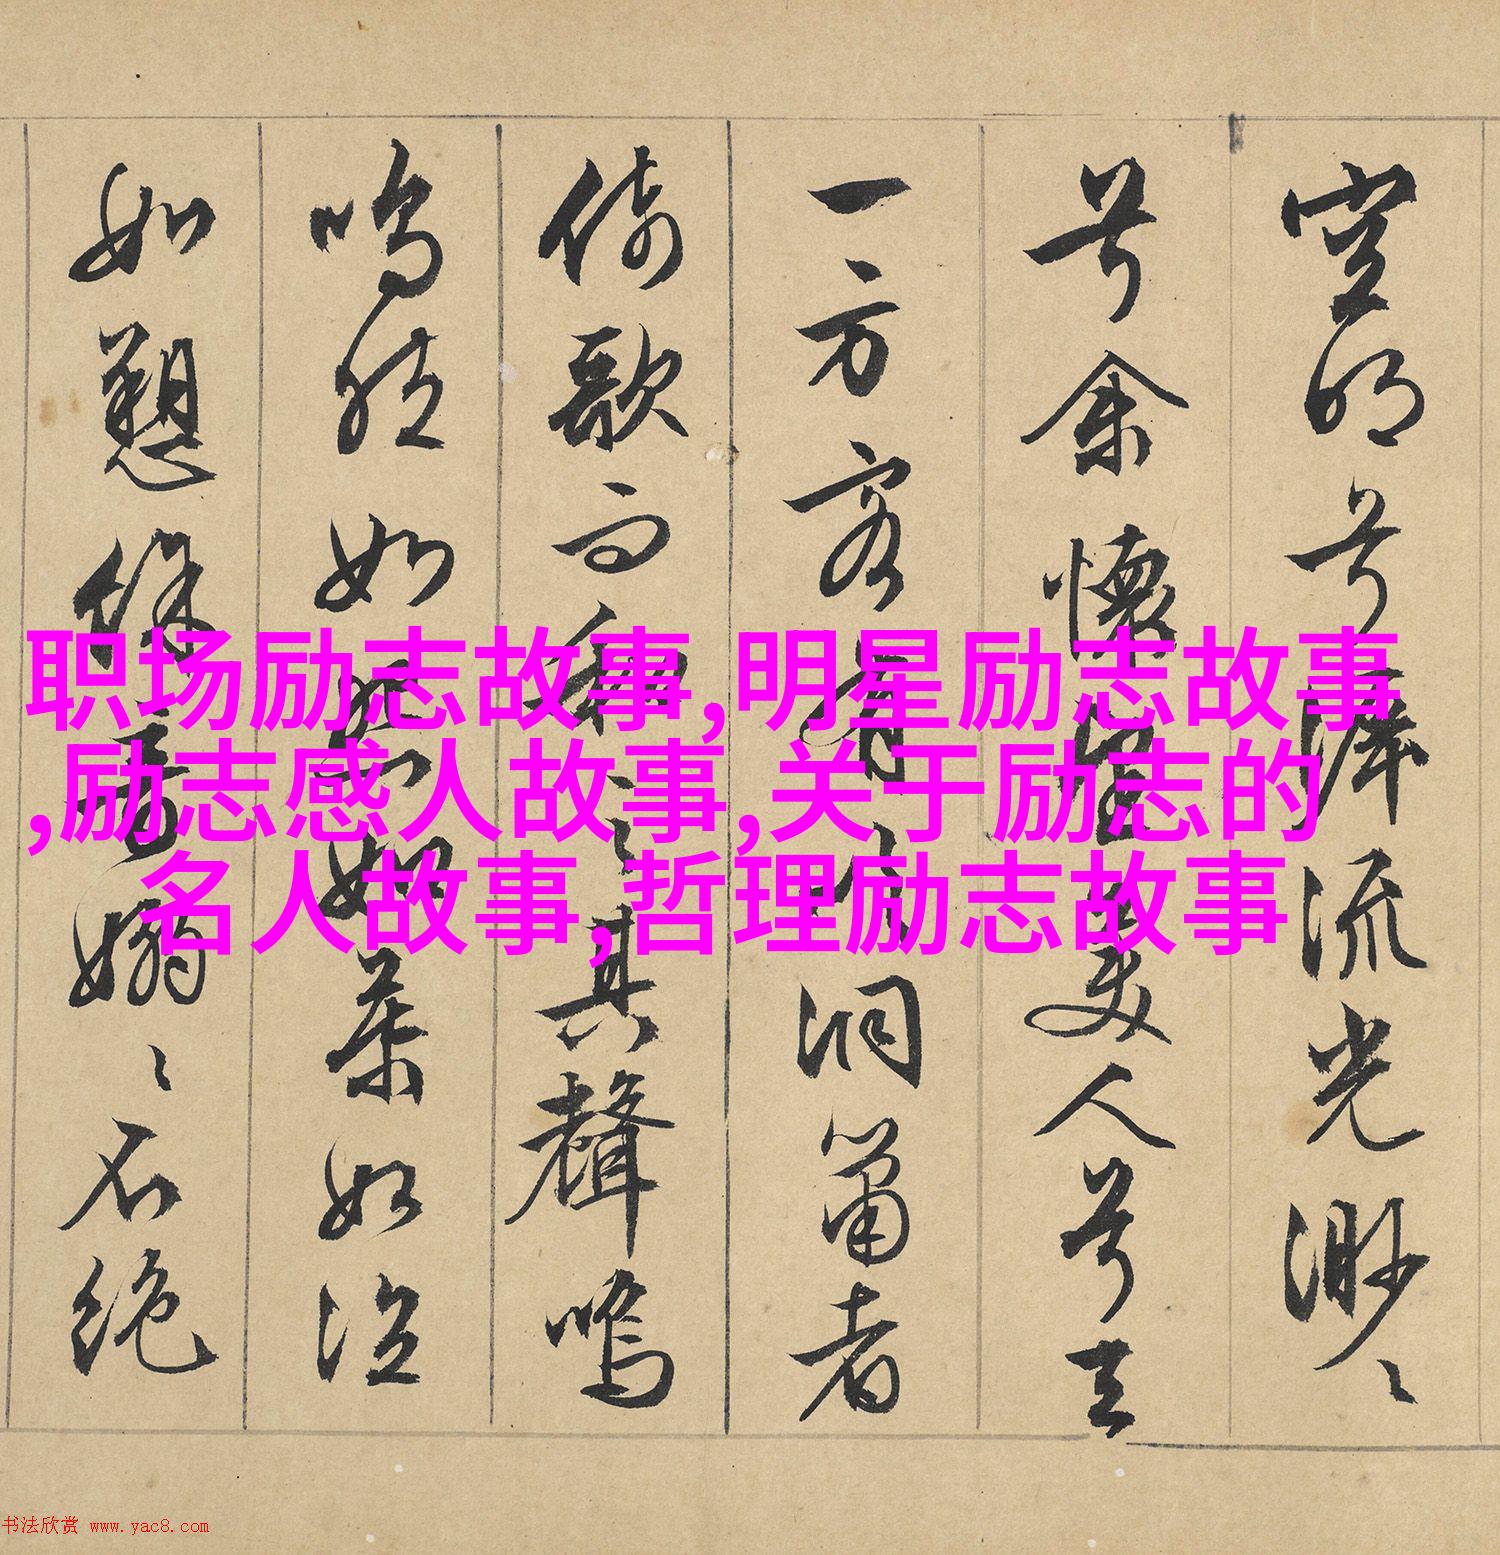 空明兮泝流光渺〻
兮余懷望美人兮天
一方客有吹洞簫者
倚歌而和之其聲嗚
嗚然如怨如慕如泣
如愬餘音嫋〻不絕
职场励志故事,明星励志故事
,励志感人故事,关于励志的
名人故事,哲理励志故事
书法欣赏 www.yac8.com